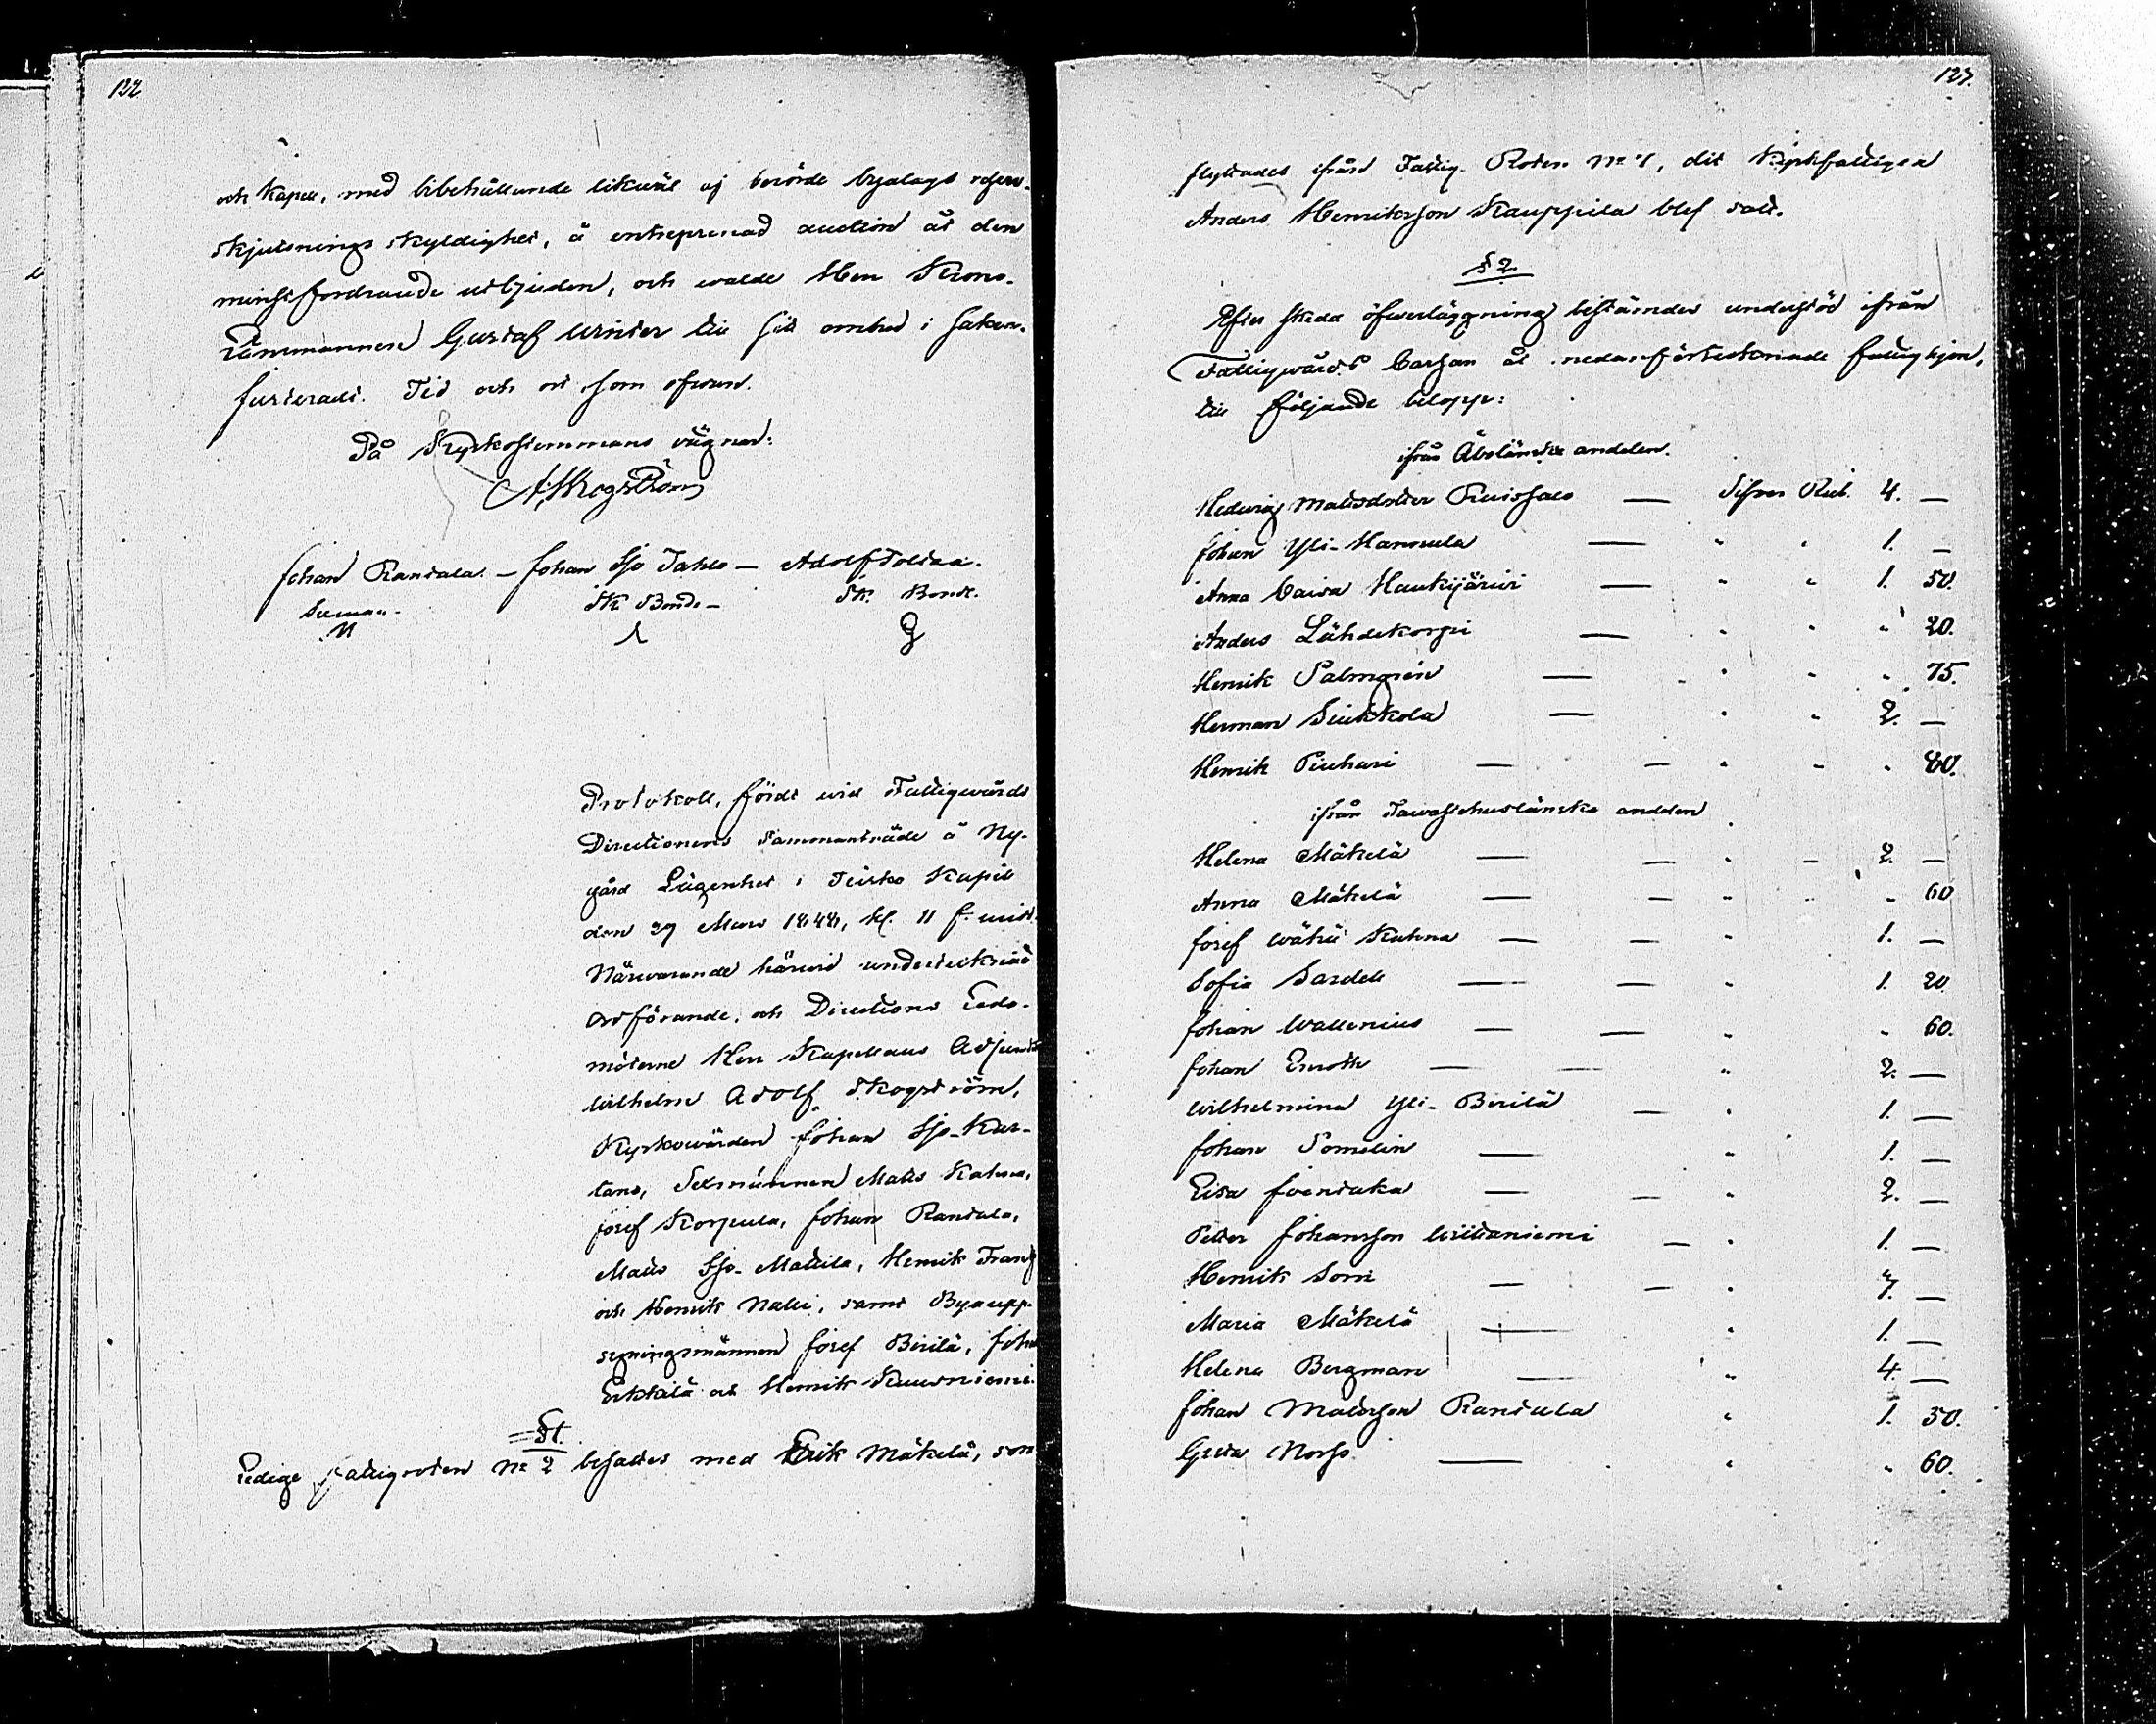 122
och Kapell, med bibehållande likwäl af berörde byalags reserv-
skjutsnings skyldighet, å entreprenad auction åt den
minstfordrande utbjuden, och walde Herr Krono-
Länsmannen Gustaf Winter till sitt ombud i saken.
justeradt. Tid och ort som ofwan.
På Kyrkostemmans vägnar:
A. Skogström
Johan Rantala. — Johan Iso Jahko — Adolf Tolkka.
Sk. Bonde — Sk. Bonde.
Protokoll, fördt wid Fattigwårds
Directionens sammanträde å Ny-
gård Lägenhet i Teisko Kapell
den 29 Mars 1848, kl. 11 f. midd.
Närwarande härwid undertecknad
ordförande, och Directions Leda-
möterne Herr Kapellans Adjunct
Wilhelm Adolf Skogström,
Kyrkowärden Johan Iso-Kar-
tano, Sexmännen Matts Kahna,
Josef Korpula, Johan Rantala,
Matts Iso-Mattila, Henrik Frantz
och Henrik Nalli, samt Byaupp-
syningsmännen Josef Pirilä, Joha
Erkkilä och Henrik Kuusniemi.
§ 1.
Ledige Fattigroten № 2 besattes med Erik Mäkelä, som
127.
flyttades ifrån Fattig-Roten № 7, dit Kyrkfattigen
Anders Henriksson Kauppila blef satt.
§ 2.
Efter skedd öfwerläggning bestämdes understöd ifrån
Fattigwårds Cassan åt nedanförtecknade fattighjon,
till följande belopp:
ifrån Åbolänska andelen.
Hedwig Mattsdotter Ruissalo — Silfver Rub. 4. —
Johan Yli-Hannula — " " 1. —
Anna Caisa Haukijärwi — " " 1. 50.
Anders Lähdekorpi — " " " 20.
Henrik Palmgrén — " " " 75.
Herman Siukkola — " " 2. —
Henrik Piuhari — — " " " 80.
ifrån Tawastehuslänska andelen
Helena Mäkelä — — " — 2. —
Anna Mäkelä — — " " " 60
Josef Wähä Kahna — — " 1. —
Sofia Sardell — — " 1. 20
Johan Wallenius — — " " 60.
Johan Enroth — — " 2. —
Wilhelmina Yli-Pirilä — " 1. —
Johan Pomelin — " 1. —
Lisa Joentaka — — " 2. —
Petter Johansson Wiitaniemi — " 1. —
Henrik Sorri — — " 7. —
Maria Mäkelä — " 1. —
Helena Bergman — " 4. —
Johan Mattsson Rantala " 1. 50.
Greta Norss — " " 60.